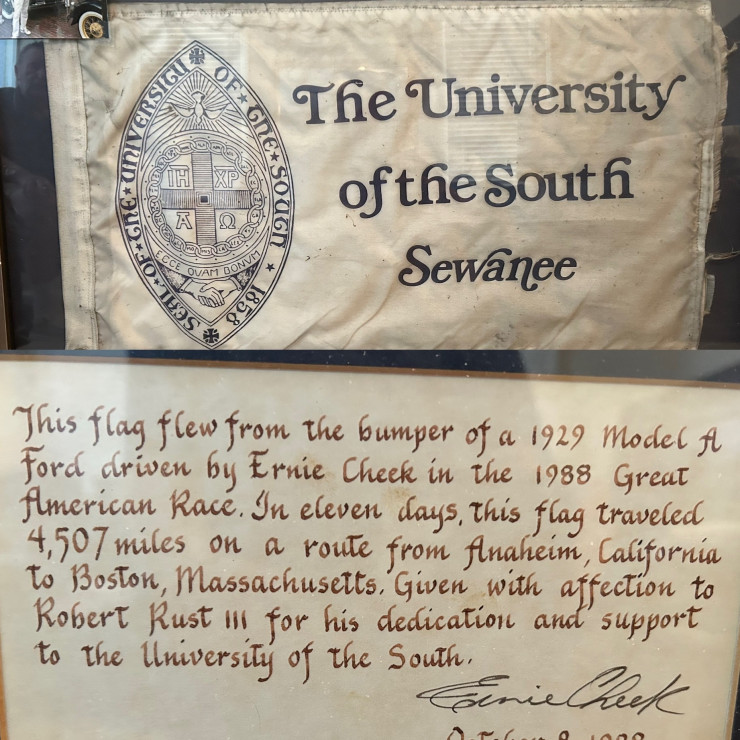 SEAL·OF·THE·UNIVERSITY OF·THE·SOUTH 1858
IH XP
A Ω
ECCE QUAM BONUM
The University
of the South
Sewanee
This flag flew from the bumper of a 1929 Model A
Ford driven by Ernie Cheek in the 1988 Great
American Race. In eleven days, this flag traveled
4,507 miles on a route from Anaheim, California
to Boston, Massachusetts. Given with affection to
Robert Rust III for his dedication and support
to the University of the South.
Ernie Cheek